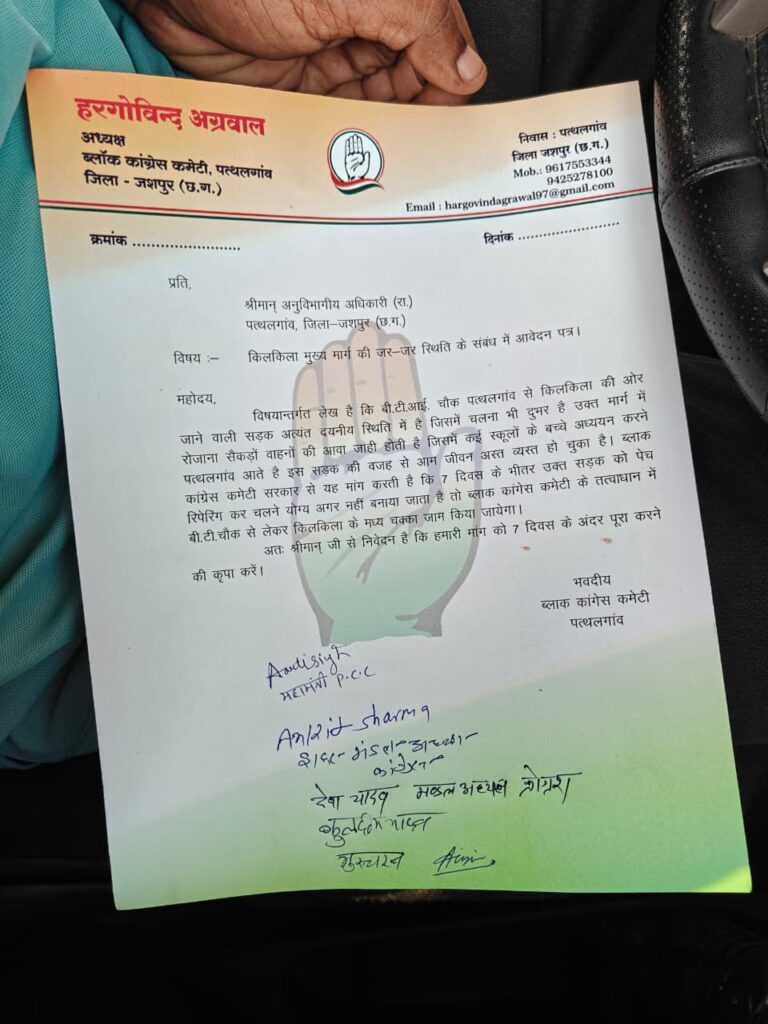 हरगोविन्द अग्रवाल
अध्यक्ष
ब्लॉक कांग्रेस कमेटी, पत्थलगांव
जिला - जशपुर (छ.ग.)
निवास : पत्थलगांव
जिला जशपुर (छ.ग.)
Mob.: 9617553344
9425278100
Email : hargovindagrawal97@gmail.com
क्रमांक ........................
दिनांक ........................
प्रति,
श्रीमान् अनुविभागीय अधिकारी (रा.)
पत्थलगांव, जिला–जशपुर (छ.ग.)
विषय :– किलकिला मुख्य मार्ग की जर–जर स्थिति के संबंध में आवेदन पत्र।
महोदय,
विषयान्तर्गत लेख है कि बी.टी.आई. चौक पत्थलगांव से किलकिला की ओर
जाने वाली सड़क अत्यंत दयनीय स्थिति में है जिसमें चलना भी दुभर है उक्त मार्ग में
रोजाना सैकड़ों वाहनों की आवा जाही होती है जिसमें कई स्कूलों के बच्चे अध्ययन करने
पत्थलगांव आते है इस सड़क की वजह से आम जीवन अस्त व्यस्त हो चुका है। ब्लाक
कांग्रेस कमेटी सरकार से यह मांग करती है कि 7 दिवस के भीतर उक्त सड़क को पेच
रिपेरिंग कर चलने योग्य अगर नहीं बनाया जाता है तो ब्लाक कांगेस कमेटी के तत्वाधान में
बी.टी.चौक से लेकर किलकिला के मध्य चक्का जाम किया जायेगा।
अतः श्रीमान् जी से निवेदन है कि हमारी मांग को 7 दिवस के अंदर पूरा करने
की कृपा करें।
भवदीय
ब्लाक कांगेस कमेटी
पत्थलगांव
महामंत्री P.C.C
Ankit Sharma
मंडल
यादव मण्डल अध्यक्ष
गुरुचरन